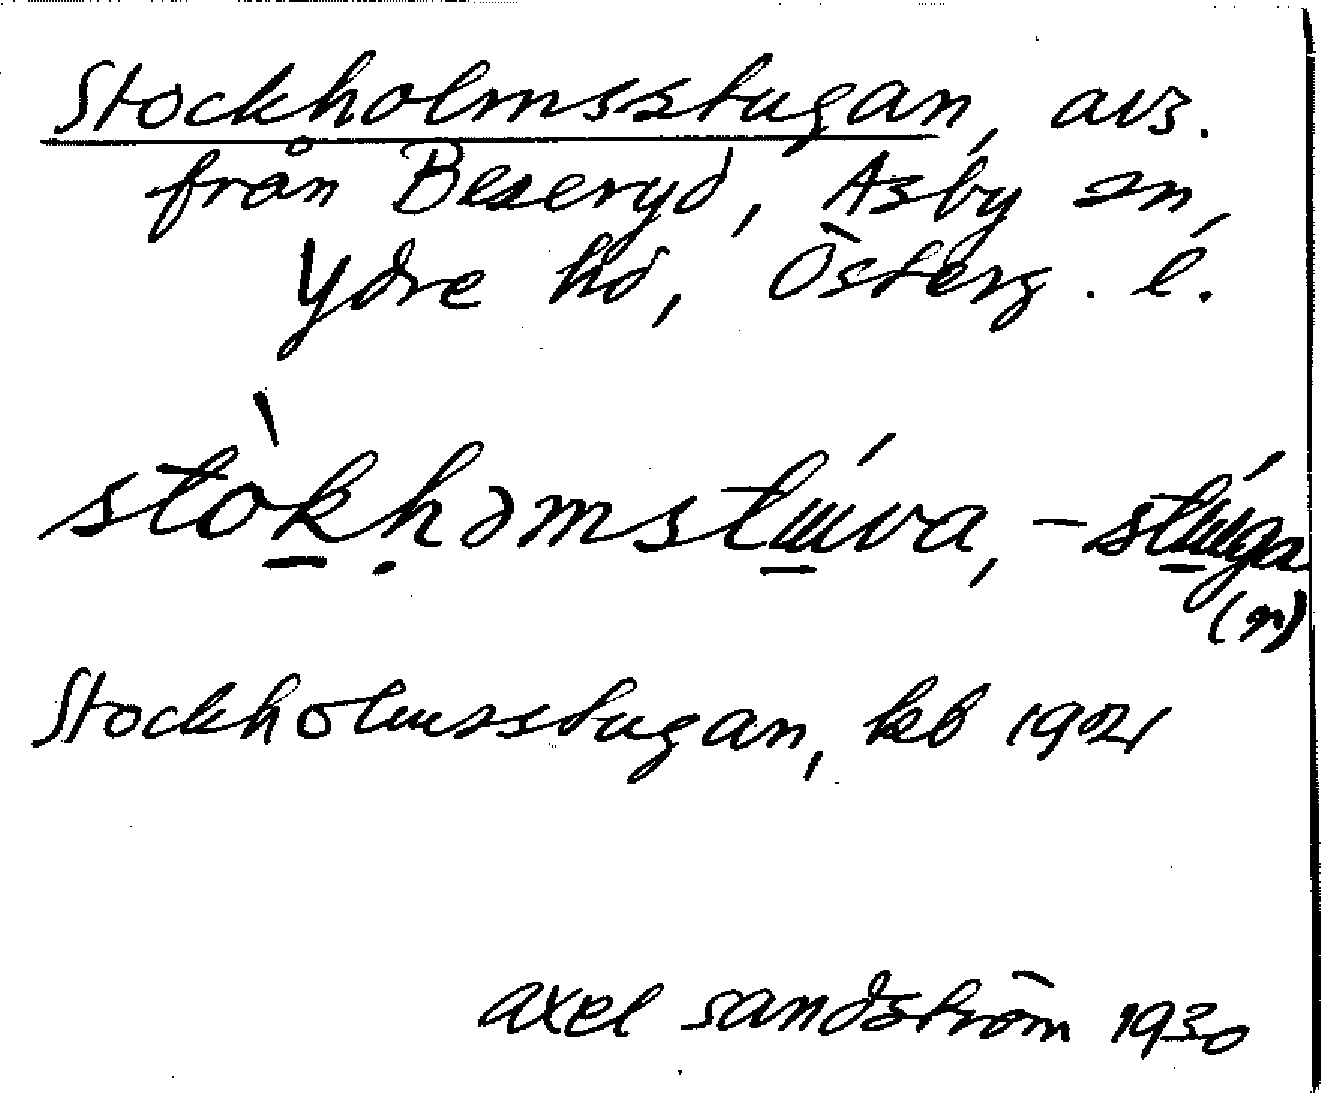 Stockholmsstugan, avs.
från Beseryd, Asby sn,
Ydre hd, Österg. l.
stòk̠ḥəmstɯ́va, -stɯ́ga
(n)
Stockholmsstugan, kb 1921
Axel Sandström 1930